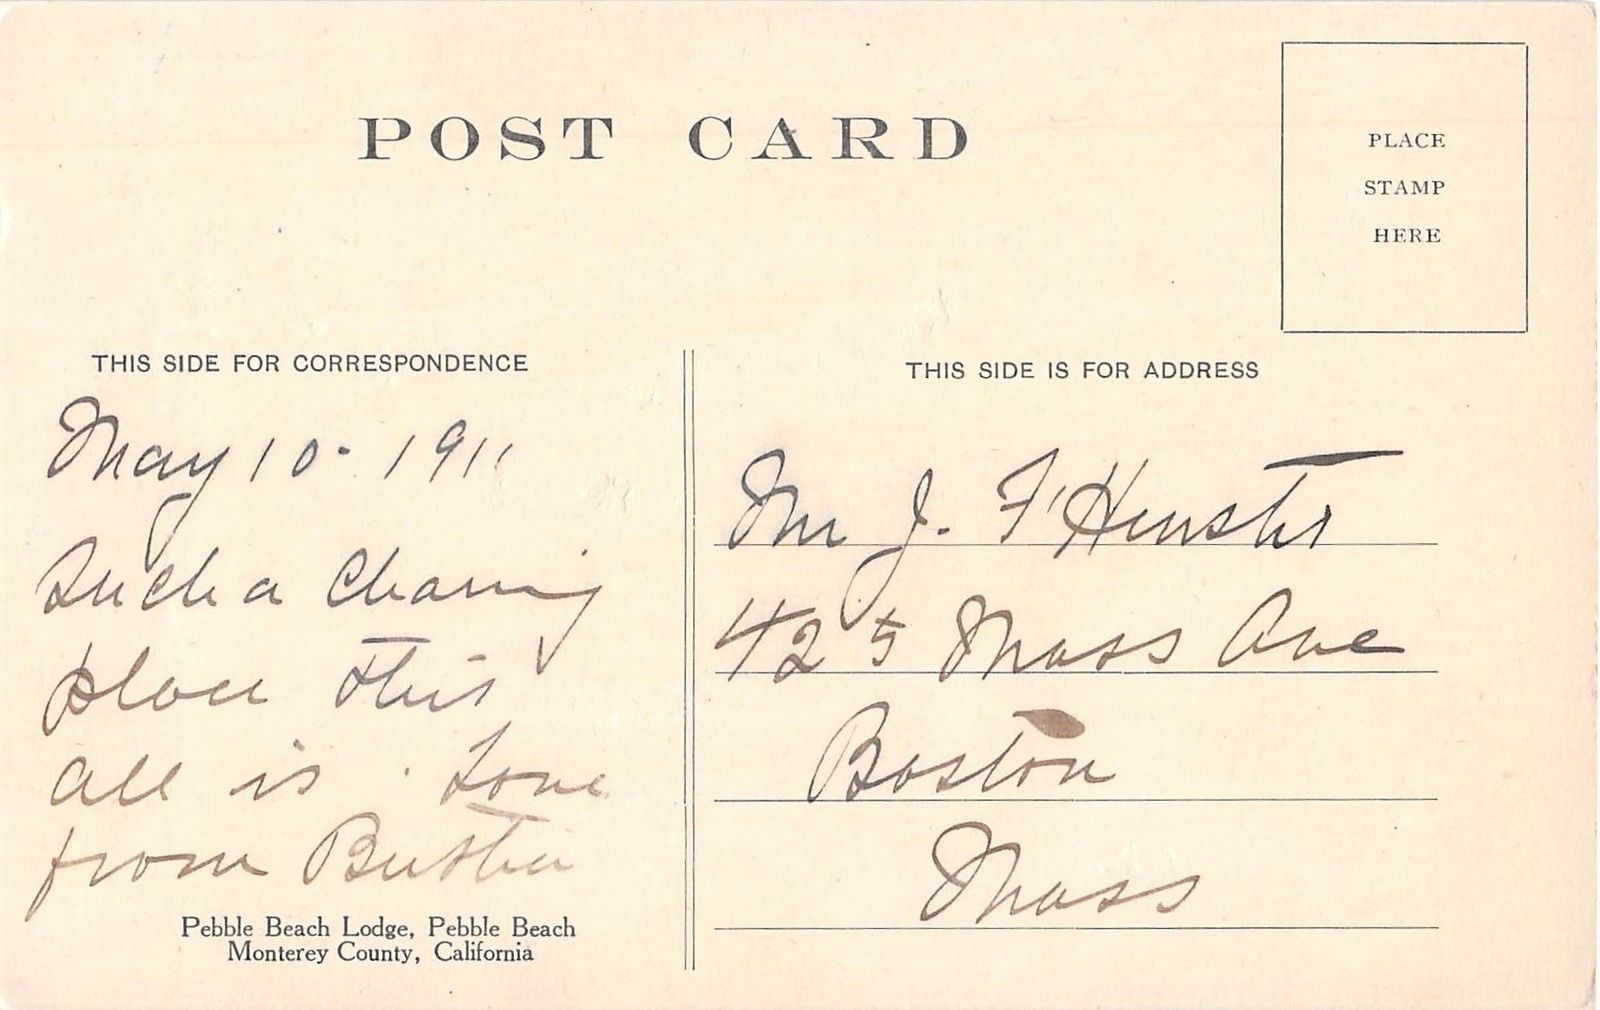 POST CARD
PLACE
STAMP
HERE
THIS SIDE FOR CORRESPONDENCE
May 10 - 1911
Such a Charming
place this
all is . Love
from Buster
Pebble Beach Lodge, Pebble Beach
Monterey County, California
THIS SIDE IS FOR ADDRESS
Mr J. F.
425 Mass Ave
Boston
Mass